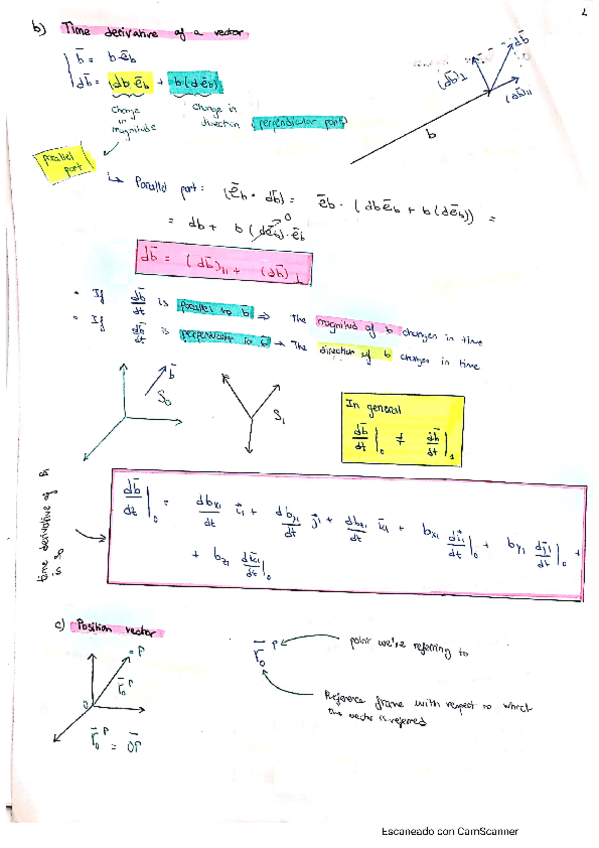 b) Time derivative of a vector
b̄ = b·ēb
db̄ = (db·ēb) + b(dēb)
Change in magnitude
Change in direction (perpendicular part)
parallel part
↳ Parallel part: (ēb · db̄) = ēb · (dbēb + b(dēb)) =
= db + b(dēb)·ēb 0
db̄ = (db̄)∥ + (db̄)⊥
• If db̄/dt is parallel to b̄ ⇒ The magnitud of b changes in time
• If db̄/dt is perpendicular to b̄ → The direction of b changes in time
b̄
S0
S1
In general
db̄/dt|0 ≠ db̄/dt|1
db̄/dt|0 = dbx1/dt ī1 + dby1/dt j̄1 + dbz1/dt k̄1 + bx1 dī1/dt|0 + by1 dj̄1/dt|0 +
+ bz1 dk̄1/dt|0
time derivative of
in S0
c) Position vector
P
r̄0ᴾ
0
r̄0ᴾ = 0P̄
r̄0ᴾ
point we're referring to
Reference frame with respect to which the vector is referred
db̄
(db̄)⊥
(db̄)∥
b
Escaneado con CamScanner